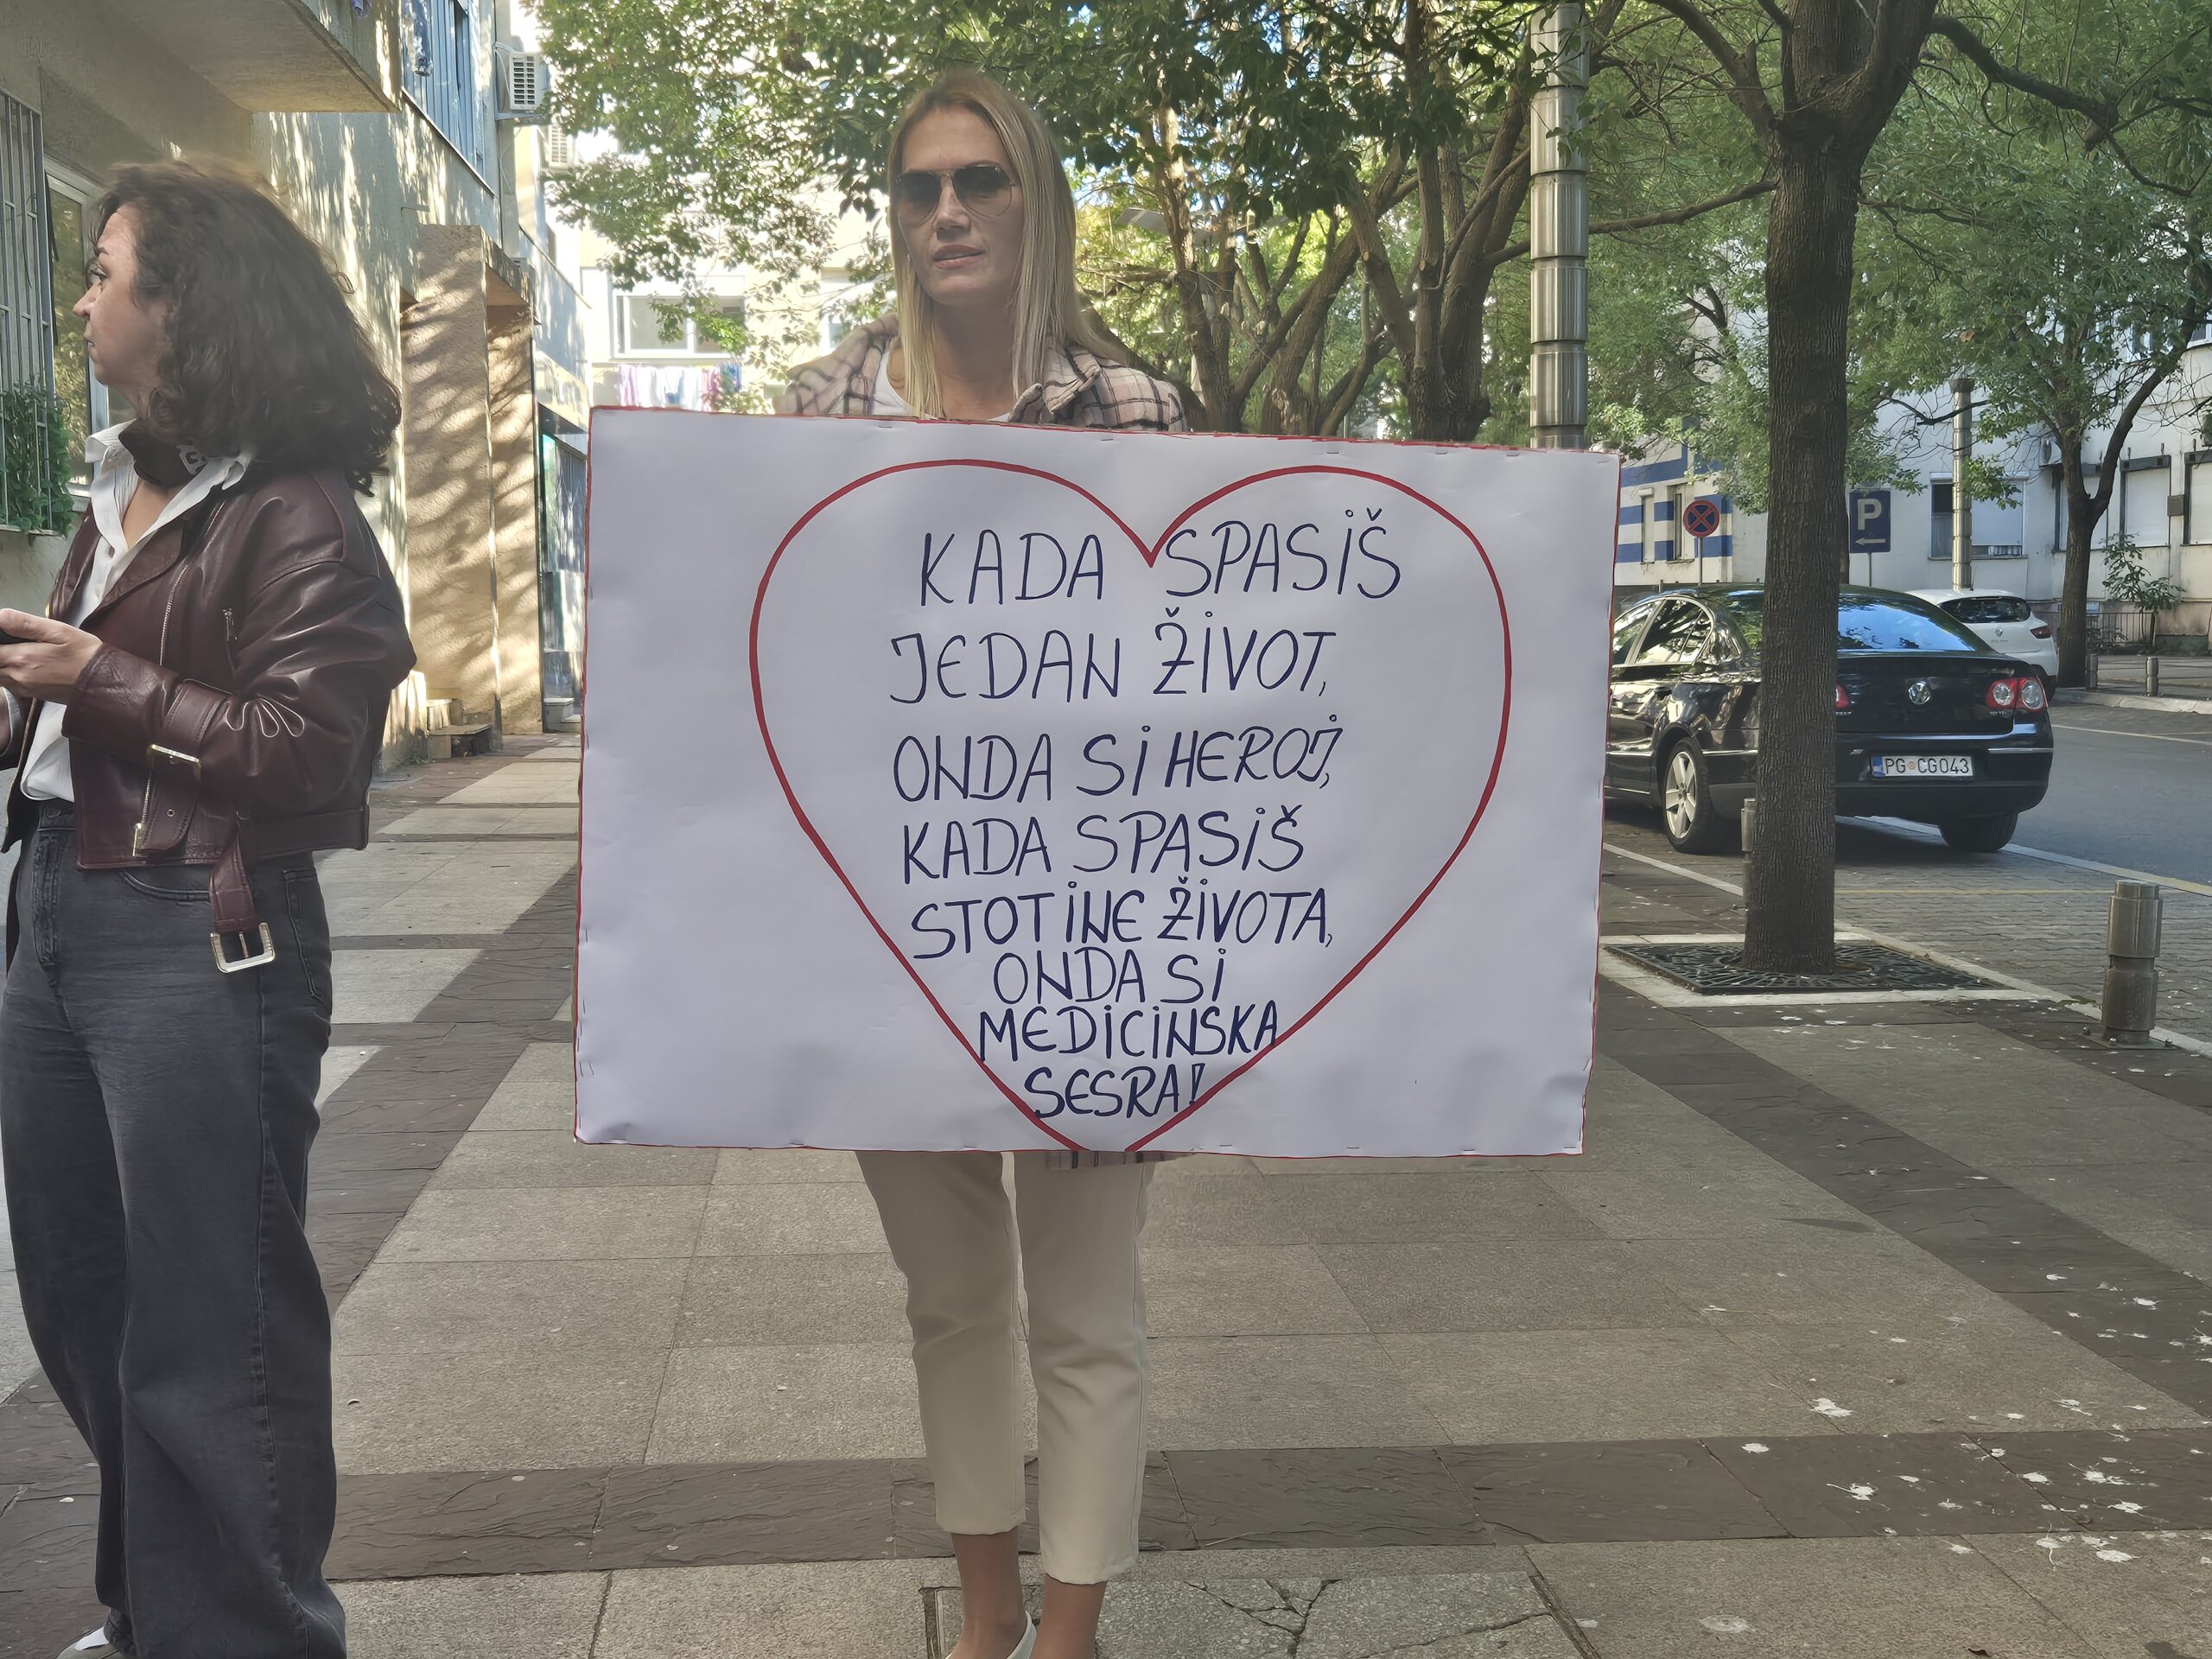 KADA SPASIŠ
JEDAN ŽIVOT,
ONDA SI HEROJ,
KADA SPASIŠ
STOTINE ŽIVOTA,
ONDA SI
MEDICINSKA
SESRA!
P
PG CG043